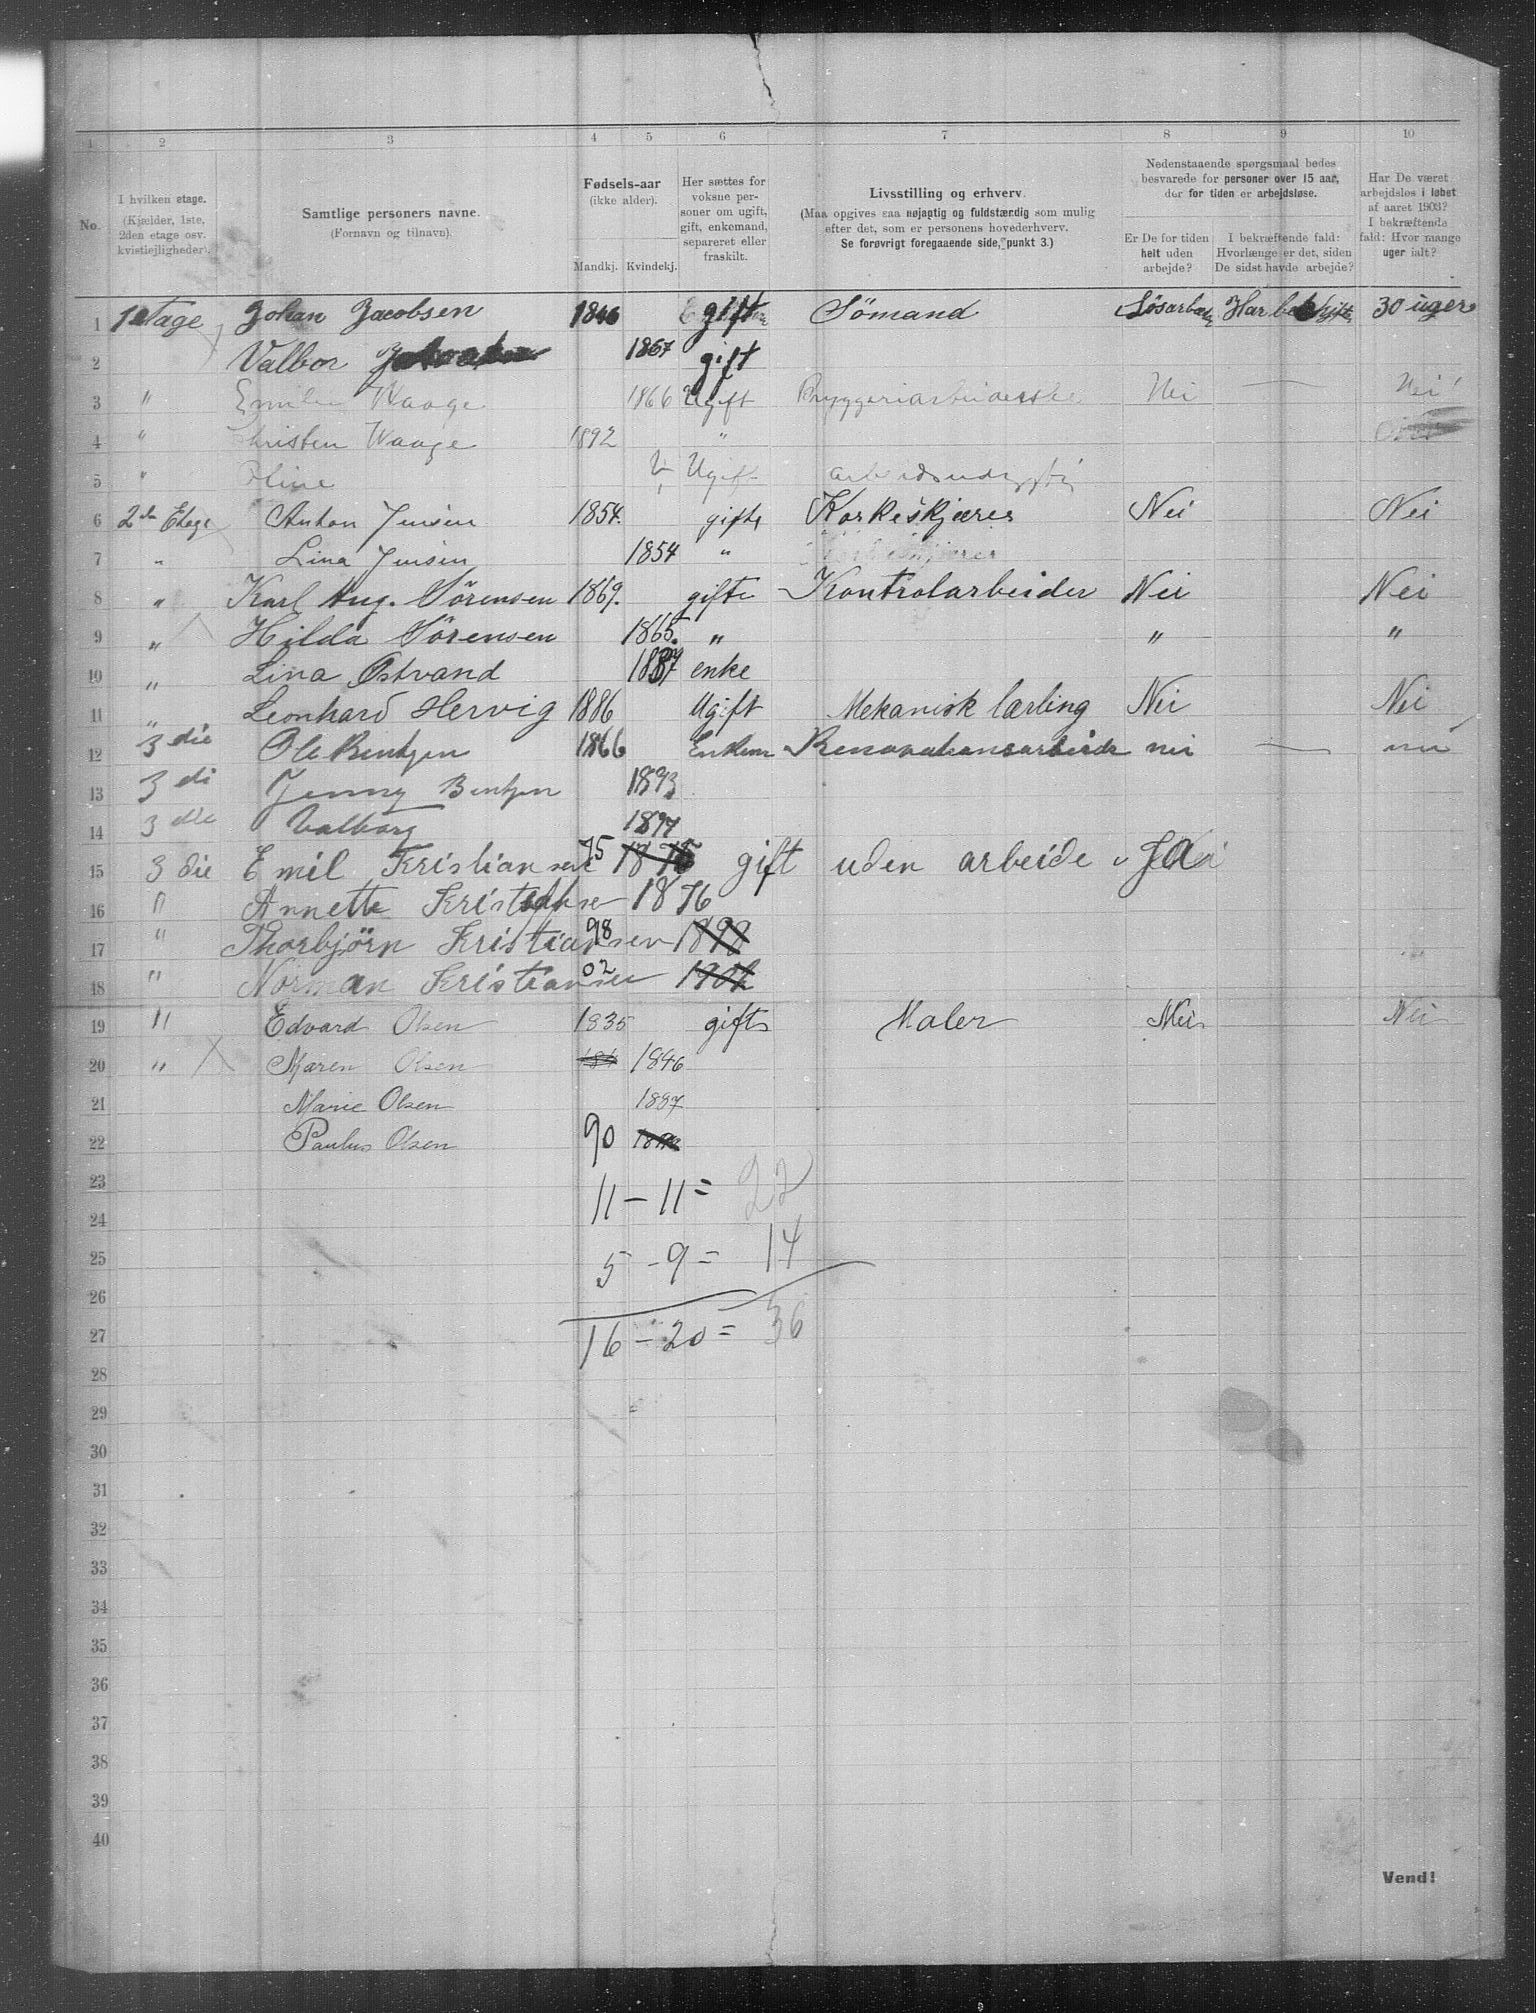 1 2 3 4 5 6 7 8 9 10
No.
I hvilken etage. (Kjælder, 1ste, 2den etage osv. kvistlejligheder).
Samtlige personers navne. (Fornavn og tilnavn).
Fødsels-aar (ikke alder). Mandkj. Kvindekj.
Her sættes for voksne personer om ugift, gift, enkemand, separeret eller fraskilt.
Livsstilling og erhverv. (Maa opgives saa nøjagtig og fuldstærdig som mulig efter det, som er personens hovederhverv. Se forøvrigt foregaaende side, punkt 3.)
Nedenstaaende spørgsmaal bedes besvarede for personer over 15 aar, der for tiden er arbejdsløse.
Er De for tiden helt uden arbejde?
I bekræftende fald: Hvorlænge er det, siden De sidst havde arbejde?
Har De været arbejdsløs i løbet af aaret 1903? I bekræftende fald: Hvor mange uger ialt?
1 1 Etage Johan Jacobsen 1846 gift Sömand Løsarbeid 30 uger
2 Valbor 1867 gift
3 " Emilie Waage 1866 Ugift Bryggeriarbeiderske Nei — Nei
4 " Christen Waage 1892 "
5 " Oline Ugift
6 2den Etage Anton Jensen 1854. gifte Korkeskjærer Nei Nei
7 " Lina Jensen 1854 "
8 " Karl Aug. Sörensen 1869. gifte Kontrolarbeider Nei Nei
9 " Hilda Sörensen 1865. " " "
10 " Lina Østvand enke
11 " Leonhard Hervig 1886 Ugift Mekanisk lærling Nei Nei
12 3 die Ole Bentzen 1866 Enkem Renovationsarbeider nei — nei
13 3 di Jenny Bentzen 1893
14 3 die Valborg 1897
15 3 die Emil Kristiansen 75 gift uden arbeide Ja
16 " Annette Kristianse 1876
17 " Thorbjörn Kristiansen 98 1898
18 " Norman Kristiansen 02 1902
19 " Edvard Olsen 1835 gift Maler Nei Nei
20 " Maren Olsen 1846
21 Marie Olsen 1887
22 Paulus Olsen 90
23 11 — 11 = 22
24
25 5 - 9 = 14
26
27 16 — 20 = 36
28
29
30
31
32
33
34
35
36
37
38
39
40
Vend!